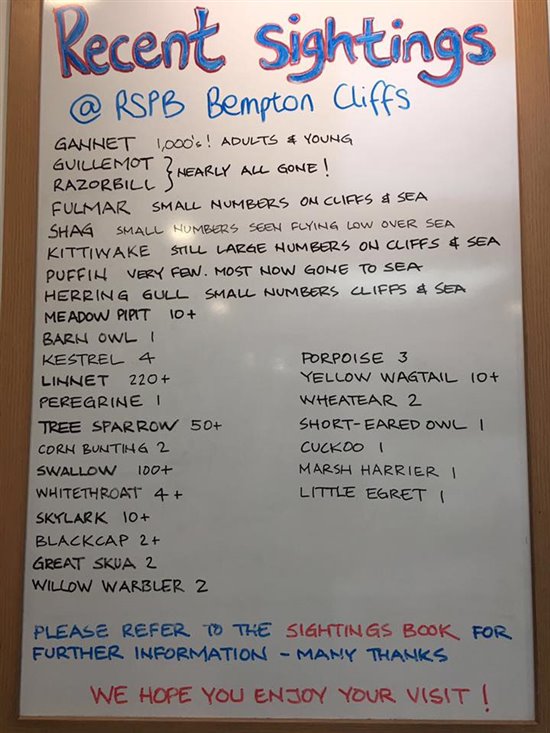 Recent Sightings
@ RSPB Bempton Cliffs
GANNET 1,000's! ADULTS & YOUNG
GUILLEMOT
RAZORBILL } NEARLY ALL GONE!
FULMAR SMALL NUMBERS ON CLIFFS & SEA
SHAG SMALL NUMBERS SEEN FLYING LOW OVER SEA
KITTIWAKE STILL LARGE NUMBERS ON CLIFFS & SEA
PUFFIN VERY FEW. MOST NOW GONE TO SEA
HERRING GULL SMALL NUMBERS CLIFFS & SEA
MEADOW PIPIT 10+
BARN OWL 1
KESTREL 4
LINNET 220+
PEREGRINE 1
TREE SPARROW 50+
CORN BUNTING 2
SWALLOW 100+
WHITETHROAT 4+
SKYLARK 10+
BLACKCAP 2+
GREAT SKUA 2
WILLOW WARBLER 2
PORPOISE 3
YELLOW WAGTAIL 10+
WHEATEAR 2
SHORT-EARED OWL 1
CUCKOO 1
MARSH HARRIER 1
LITTLE EGRET 1
PLEASE REFER TO THE SIGHTINGS BOOK FOR
FURTHER INFORMATION - MANY THANKS
WE HOPE YOU ENJOY YOUR VISIT!